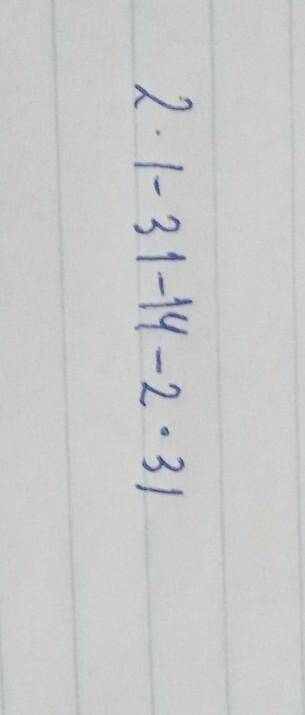 2·|-3|-|4-2·3|